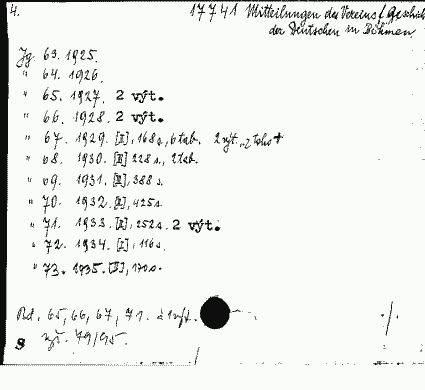 4. 17741 Mitteilungen des Vereins f. Geschich
der Deutschen in Böhmen
Jg. 63. 1925.
" 64. 1926.
" 65. 1927. 2 výt.
" 66. 1928. 2 výt.
" 67. 1929. [I], 168 s., 6 tab. 2 výt.
" 68. 1930. [II] 228 s., 2 tab.
" 69. 1931. [II], 388 s.
" 70. 1932. [II], 425 s.
" 71. 1933. [II], 252 s. 2 výt.
" 72. 1934. [I], 116 s.
" 73. 1935. [II], 170 s.
65, 66, 67, 71. à 1 výt.
S 79/95.